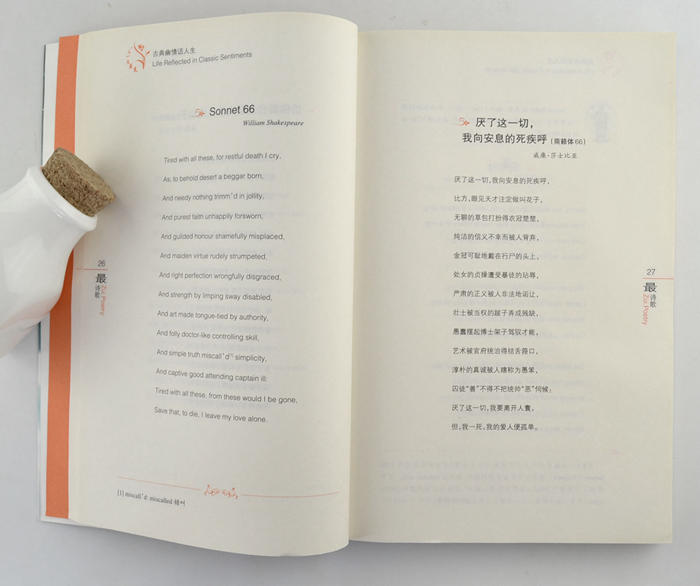 古典幽情话人生
Life Reflected in Classic Sentiments
Sonnet 66
William Shakespeare
Tired with all these, for restful death I cry,
As, to behold desert a beggar born,
And needy nothing trimm'd in jollity,
And purest faith unhappily forsworn,
And guilded honour shamefully misplaced,
And maiden virtue rudely strumpeted,
And right perfection wrongfully disgraced,
And strength by limping sway disabled,
And art made tongue-tied by authority,
And folly doctor-like controlling skill,
And simple truth miscall'd[1] simplicity,
And captive good attending captain ill:
Tired with all these, from these would I be gone,
Save that, to die, I leave my love alone.
[1] miscall'd: miscalled 错叫
26
最
诗歌
Zui Poetry
厌了这一切,
我向安息的死疾呼(商籁体66)
威廉·莎士比亚
厌了这一切,我向安息的死疾呼,
比方,眼见天才注定做叫花子,
无聊的草包打扮得衣冠楚楚,
纯洁的信义不幸而被人背弃,
金冠可耻地戴在行尸的头上,
处女的贞操遭受暴徒的玷辱,
严肃的正义被人非法地诟让,
壮士被当权的跛子弄成残缺,
愚蠢摆起博士架子驾驭才能,
艺术被官府统治得结舌箝口,
淳朴的真诚被人瞎称为愚笨,
囚徒“善”不得不把统帅“恶”伺候:
厌了这一切,我要离开人寰,
但,我一死,我的爱人便孤单。
27
最
诗歌
Zui Poetry